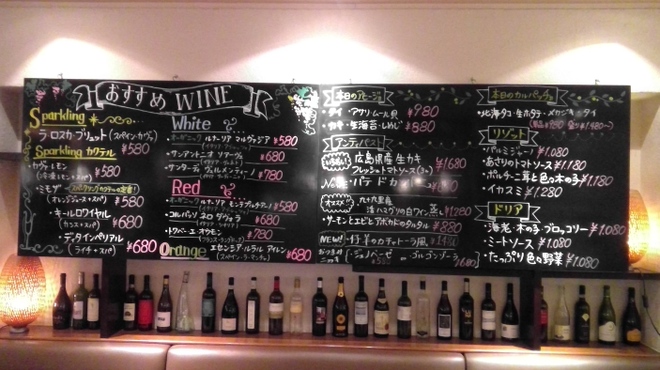 おすすめ WINE
Sparkling
ラロスカ・ブリュット (スペイン・カヴァ)
¥580
Sparkling カクテル
カヴァ・レモン ¥580
・ミモザ
(オレンジジュース+スパ) ¥580
・キールロワイヤル
(カシス+スパ) ¥680
・ディタインペリアル
(ライチ+スパ) ¥680
White
・オーガニック ルナーリア マルヴァジア ¥580
・サンアントニオ ソアーヴェ ¥680
・サンターディ ヴェルメンティーノ ¥780
Red
・オーガニック ルナーリア モンテプルチアーノ ¥580
・コルパッソ ネロ ダヴォラ ¥680
・トゥバ・エ・オウモン ¥780
Orange
エセンシア ルラル アイレン ¥680
(スペイン・ラ・マンチャ)
本日のアヒージョ
・タイ・アサリ ¥780
・カキ・生海苔・しめじ ¥880
アンティパスト
広島県産 生カキ ¥1,680
フレッシュトマトソース
オススメ 九十九里産
活ハマグリの白ワイン蒸し ¥1,280
・サーモンとエビとアボカドのタルタル ¥880
NEW!
本日のカルパッチョ
・北海タコ・生ホタテ・メカジキ・タイ
リゾット
・パルミジャーノ ¥1,080
・あさりのトマトソース ¥1,180
・ポルチーニ茸と色々木の子 ¥1,180
・イカスミ ¥1,280
ドリア
・海老・木の子・ブロッコリー ¥1,080
・ミートソース ¥1,080
・たっぷり色々野菜 ¥1,080